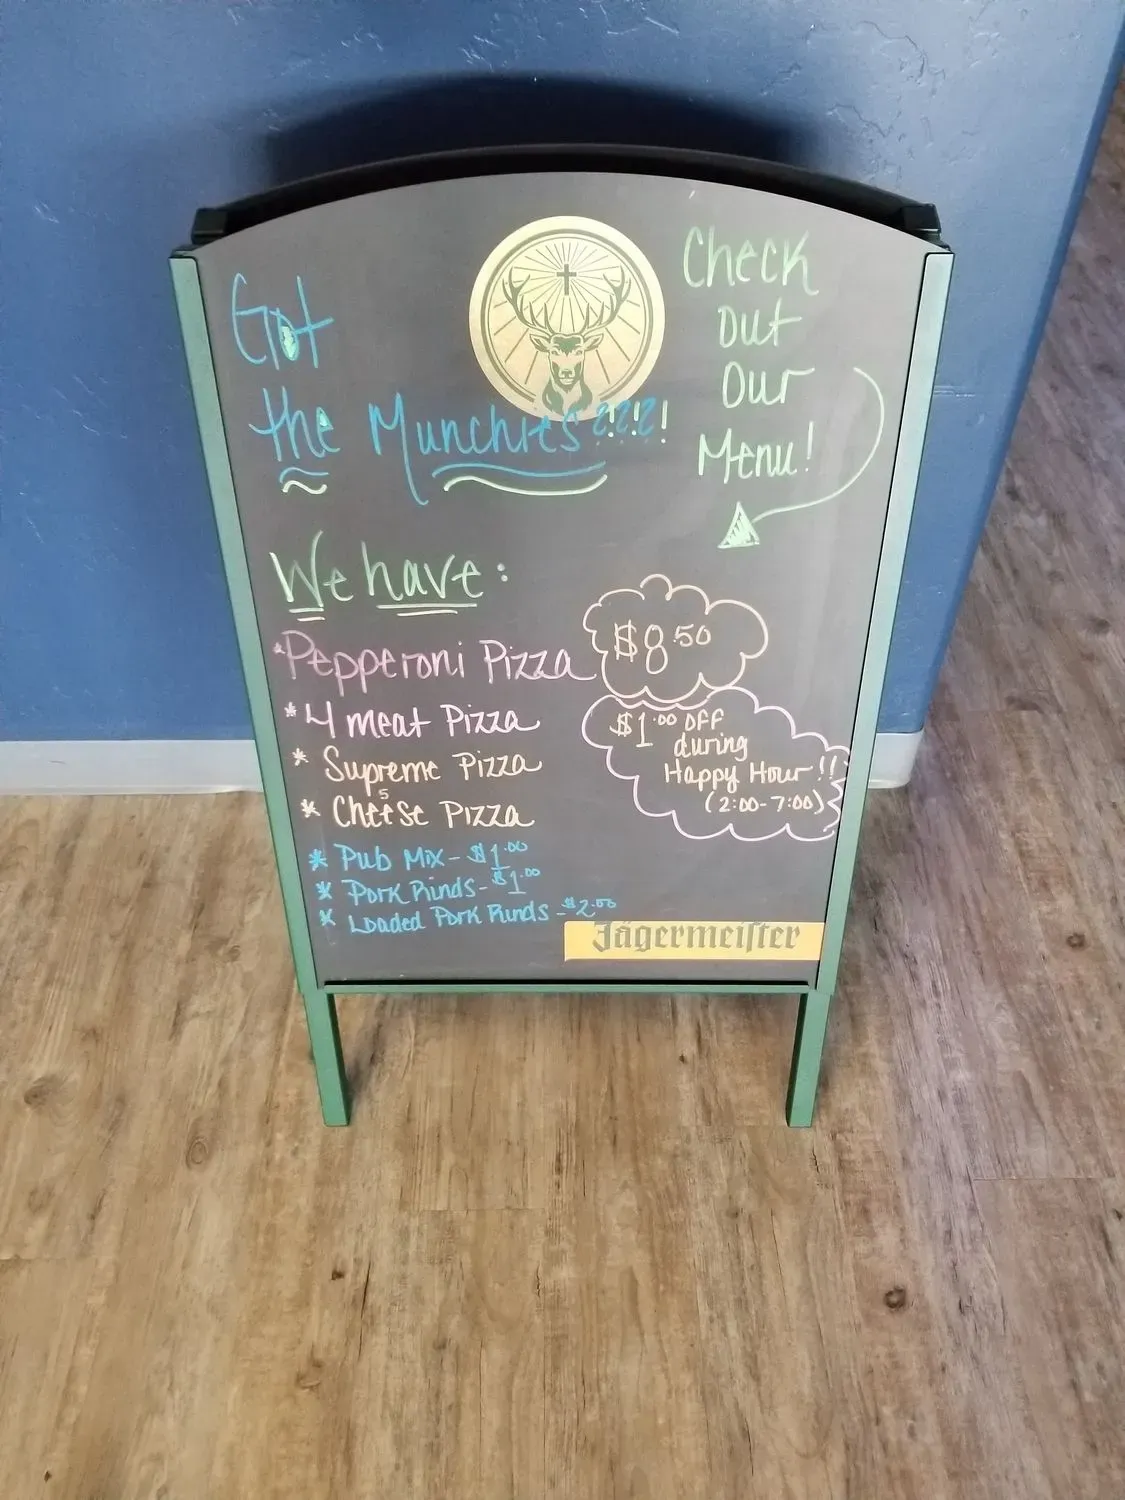 Got
the Munchies????!
Check
out
Our
Menu!
We have:
*Pepperoni Pizza
$8.50
* 4 meat Pizza
* Supreme Pizza
* 5 Cheese Pizza
$1.00 OFF
during
Happy Hour!!
(2:00-7:00)
* Pub Mix - $1.00
* Pork Rinds - $1.00
* Loaded Pork Rinds - $2.00
Jägermeister